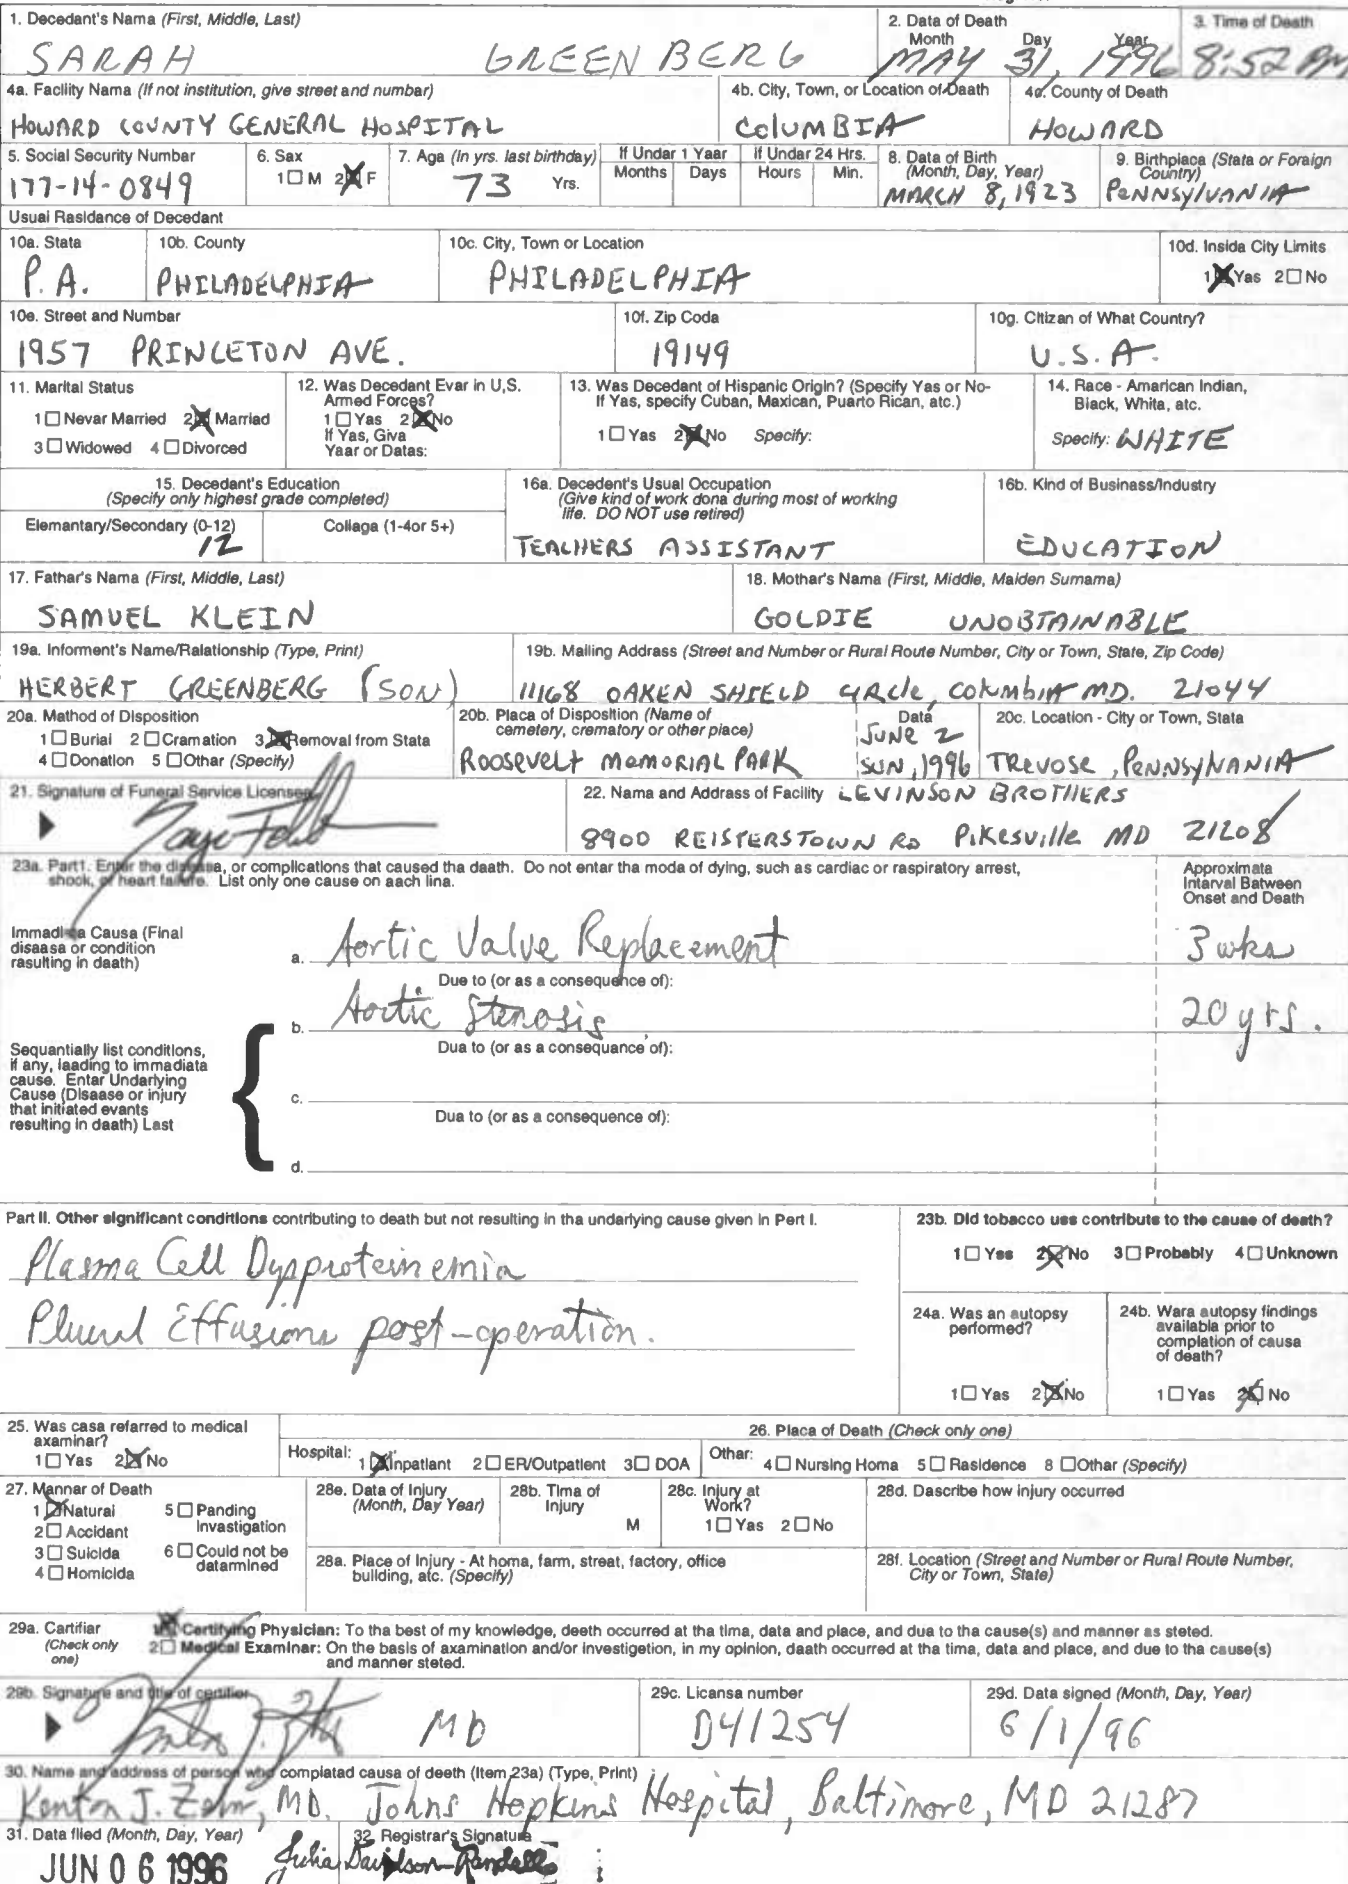 1. Decedant's Name (First, Middle, Last)
SARAH GREENBERG
2. Data of Death
Month Day Year
MAY 31, 1996
3. Time of Death
8:52 PM
4a. Facility Name (If not institution, give street and numbar)
HOWARD COUNTY GENERAL HOSPITAL
4b. City, Town, or Location of Daath
COLUMBIA
4c. County of Death
HOWARD
5. Social Security Number
177-14-0849
6. Sax
1 M 2 F
7. Age (In yrs. last birthday)
73 Yrs.
If Undar 1 Yaar
Months Days
If Undar 24 Hrs.
Hours Min.
8. Data of Birth
(Month, Day, Year)
MARCH 8, 1923
9. Birthplaca (Stata or Foraign
Country)
PENNSYLVANIA
Usual Rasidance of Decedant
10a. Stata
P.A.
10b. County
PHILADELPHIA
10c. City, Town or Location
PHILADELPHIA
10d. Insida City Limits
1 Yas 2 No
10e. Street and Numbar
1957 PRINCETON AVE.
10f. Zip Coda
19149
10g. Citizan of What Country?
U.S.A.
11. Marital Status
1 Nevar Married 2 Marriad
3 Widowed 4 Divorced
12. Was Decedant Evar in U,S.
Armed Forces?
1 Yas 2 No
If Yas, Giva
Yaar or Datas:
13. Was Decedant of Hispanic Origin? (Specify Yas or No-
If Yas, specify Cuban, Maxican, Puarto Rican, atc.)
1 Yas 2 No Specify:
14. Race - Amarican Indian,
Black, Whita, atc.
Specify: WHITE
15. Decedant's Education
(Specify only highest grade completed)
Elemantary/Secondary (0-12)
12
Collaga (1-4or 5+)
16a. Decedent's Usual Occupation
(Give kind of work dona during most of working
life. DO NOT use retired)
TEACHERS ASSISTANT
16b. Kind of Businass/Industry
EDUCATION
17. Fathar's Name (First, Middle, Last)
SAMUEL KLEIN
18. Mothar's Nama (First, Middle, Maiden Surnama)
GOLDIE UNOBTAINABLE
19a. Informent's Name/Ralationship (Type, Print)
HERBERT GREENBERG (SON)
19b. Mailing Address (Street and Number or Rural Route Number, City or Town, State, Zip Code)
11168 OAKEN SHIELD CIRCLE, COLUMBIA MD. 21044
20a. Mathod of Disposition
1 Burial 2 Cramation 3 Removal from Stata
4 Donation 5 Othar (Specify)
20b. Placa of Disposition (Name of
cemetery, crematory or other place)
ROOSEVELT MEMORIAL PARK
Data
JUNE 2
SUN, 1996
20c. Location - City or Town, Stata
TREVOSE, PENNSYLVANIA
21. Signature of Funeral Service Licensee
22. Name and Addrass of Facility LEVINSON BROTHERS
8900 REISTERSTOWN RD PIKESVILLE MD 21208
23a. Part1. Enter the disease, or complications that caused tha daath. Do not entar tha moda of dying, such as cardiac or raspiratory arrest,
shock, or heart failure. List only one cause on aach lina.
Approximata
Intarval Batween
Onset and Death
Immadiata Causa (Final
disaasa or condition
rasulting in daath)
a. Aortic Valve Replacement 3 wks
Due to (or as a consequence of):
b. Aortic Stenosis 20 yrs.
Dua to (or as a consequance of):
Sequantially list conditions,
if any, laading to immadiata
cause. Entar Undarlying
Cause (Disaase or injury
that initiated evants
resulting in daath) Last
c.
Dua to (or as a consequence of):
d.
Part II. Other significant conditions contributing to death but not resulting in tha undarlying cause given in Pert I.
Plasma Cell Dysproteinemia
Plural Effusions post-operation.
23b. Did tobacco use contribute to the cause of death?
1 Yes 2 No 3 Probably 4 Unknown
24a. Was an autopsy
performed?
1 Yas 2 No
24b. Wara autopsy findings
available prior to
complation of causa
of death?
1 Yas 2 No
25. Was casa refarred to medical
axaminar?
1 Yas 2 No
26. Placa of Death (Check only one)
Hospital: 1 Inpatiant 2 ER/Outpatient 3 DOA Othar: 4 Nursing Homa 5 Rasidence 8 Othar (Specify)
27. Mannar of Death
1 Natural
2 Accidant
3 Suicida
4 Homicida
5 Panding
Invastigation
6 Could not be
datamined
28e. Data of Injury
(Month, Day Year)
28b. Tima of
Injury
M
28c. Injury at
Work?
1 Yas 2 No
28d. Dascribe how injury occurred
28a. Place of Injury - At homa, farm, streat, factory, office
building, atc. (Specify)
28f. Location (Street and Number or Rural Route Number,
City or Town, State)
29a. Cartifiar
(Check only
one)
1 Certifying Physician: To tha best of my knowledge, deeth occurred at tha tima, data and place, and dua to tha cause(s) and manner as steted.
2 Medical Examinar: On the basis of axamination and/or investigetion, in my opinion, daath occurred at tha tima, data and place, and due to tha cause(s)
and manner steted.
29b. Signature and title of certifier
MD
29c. Licansa number
D41254
29d. Data signed (Month, Day, Year)
6/1/96
30. Name and address of person who complatad causa of deeth (Item 23a) (Type, Print)
Kenton J. Zehr, MD. Johns Hopkins Hospital, Baltimore, MD 21287
31. Data filed (Month, Day, Year)
JUN 06 1996
32. Registrar's Signature
Julia Davidson-Randall